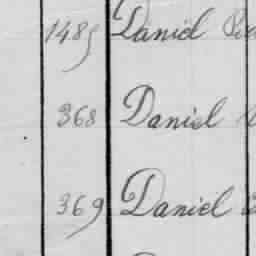 1485 Daniel
368 Daniel
369 Daniel